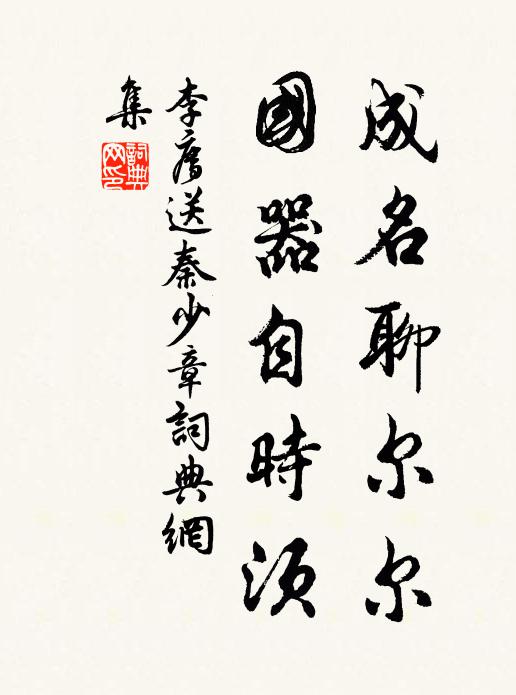 成名聊尔尔
國器自時須
李廌送秦少章詞典網
集
詞典网印